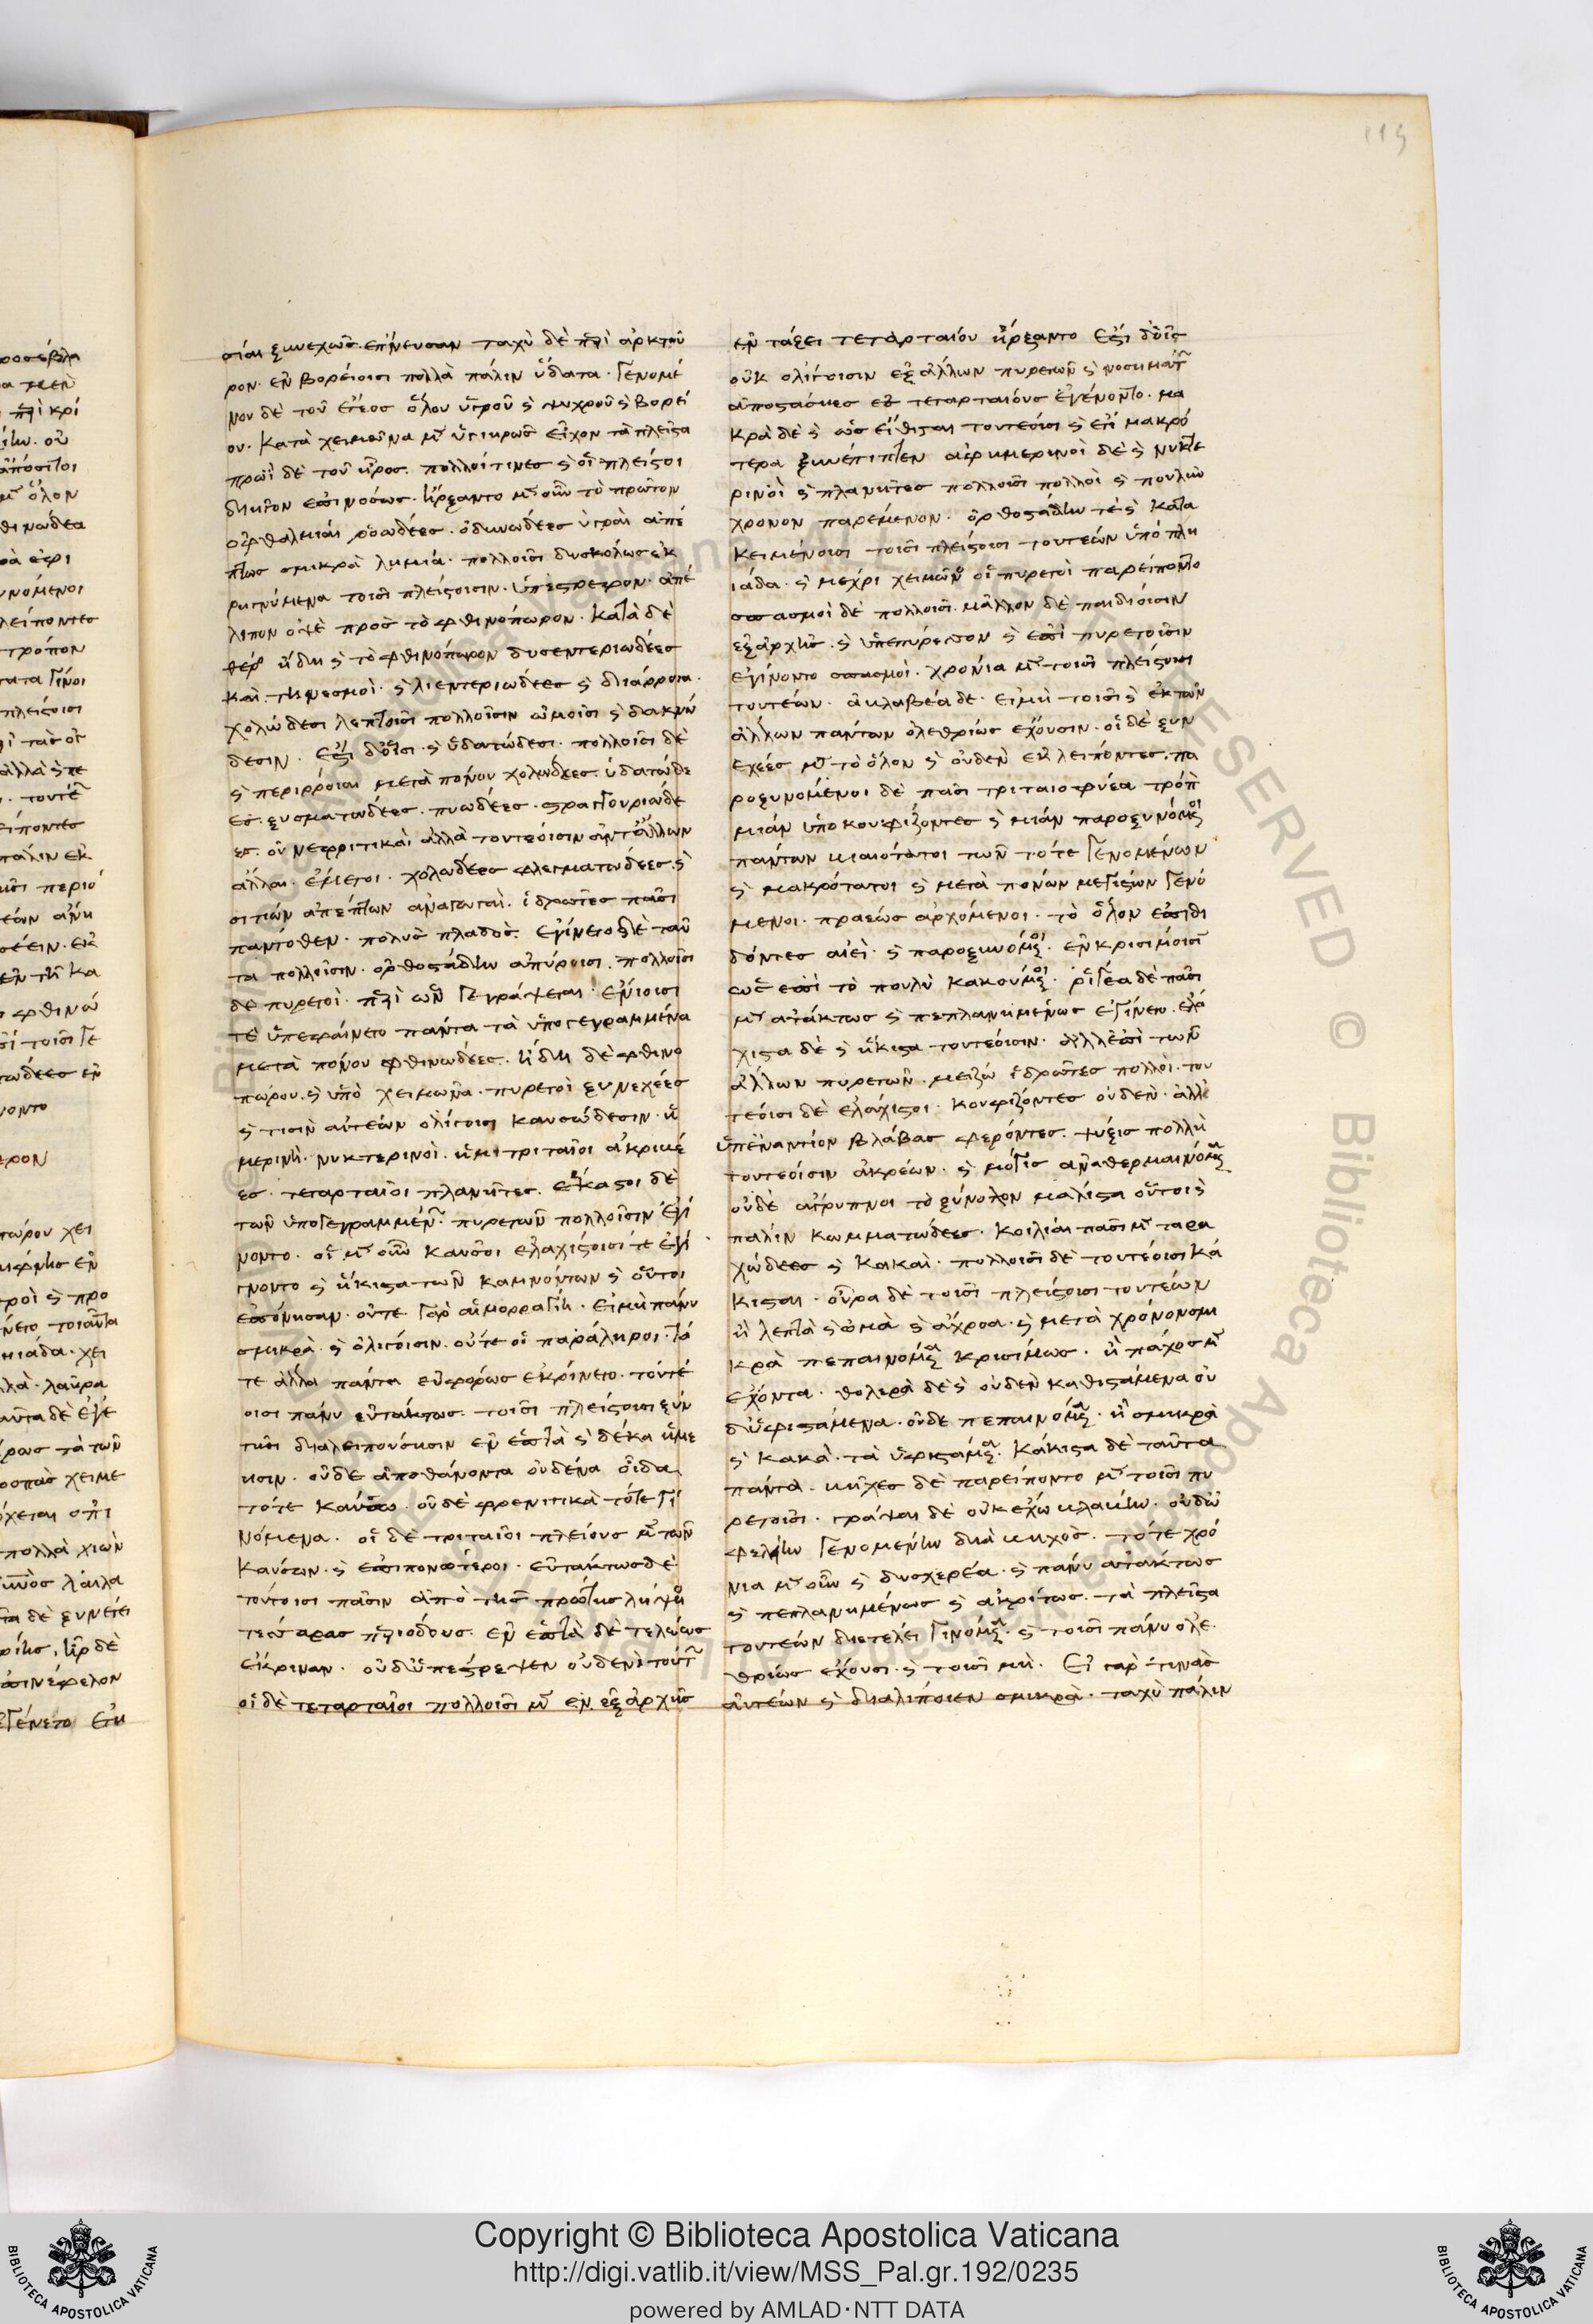 σίαι ξυνεχῶς ἐπένευσαν ταχὺ δὲ περὶ ἀρκτοῦ
ρον. ἐν βορείοισι πολλὰ πάλιν ὕδατα. γενομέ
νου δὲ τοῦ ἔτεος ὅλου ὑγροῦ ϗ ψυχροῦ ϗ βορεί
ου. κατὰ χειμῶνα μὲν ὑγιηρῶς εἶχον τὰ πλεῖστα
πρωῒ δὲ τοῦ ἦρος. πολλοί τινες ϗ οἱ πλεῖστοι
διῆγον ἐπινόσως. ἤρξαντο μὲν οὖν τὸ πρῶτον
ὀφθαλμίαι ῥοώδεες. ὀδυνώδεες ὑγραὶ ἀπέ
πτως σμικρὰ λημία. πολλοῖσι δυσκόλως ἐκ
ρηγνύμενα τοῖσι πλείστοισιν. ὑπέστρεφον. ἀπέ
λιπον ὀψὲ πρὸς τὸ φθινόπωρον. κατὰ δὲ
θέρος ἤδη ϗ τὸ φθινόπωρον δυσεντεριώδεες
καὶ τηνεσμοὶ. ϗ λιεντεριώδεες ϗ διάρροια.
χολώδεσι λεπτοῖσι πολλοῖσιν ὠμοῖσι ϗ δακνώ
δεσιν. ἔστι δ' οἷσι. ϗ ὑδατώδεσι. πολλοῖσι δὲ
ϗ περιρροίαι μετὰ πόνου χολώδεες. ὑδατώδε
ες. ξυσματώδεες. πυώδεες. στραγγουριώδε
ες. οὐ νεφριτικαὶ ἀλλὰ τουτέοισιν ἀντ' ἄλλων
ἄλλαι. ἔμετοι. χολώδεες φλεγματώδεες. ϗ
σιτίων ἀπέπτων ἀναγωγαί. ἱδρῶτες πᾶσι
πάντοθεν. πολὺς πλάδος. ἐγίνετο δὲ ταῦ
τα πολλοῖσιν. ὀρθοστάδην ἀπύροισι. πολλοῖσι
δὲ πυρετοὶ. περὶ ὧν γεγράψεται. ἐνίοισι
τε ὑπεφαίνετο πάντα τὰ ὑπογεγραμμένα
μετὰ πόνου φθινώδεες. ἤδη δὲ φθινο
πώρου. ϗ ὑπὸ χειμῶνα. πυρετοὶ ξυνεχέες
ϗ τισὶν αὐτέων ὀλίγοισι καυσώδεσιν. ἡ
μερινὴ. νυκτερινοὶ. ἡμιτριταῖοι ἀκριβέ
ες. τεταρταῖοι πλανῆτες. ἕκαστοι δὲ
τῶν ὑπογεγραμμένων πυρετῶν πολλοῖσιν ἐγί
νοντο. οἱ μὲν οὖν καῦσοι ἐλαχίστοισί τε ἐγί
γνοντο ϗ ἥκιστα τῶν καμνόντων ϗ οὗτοι
ἐπόνησαν. οὔτε γὰρ αἱμορραγίη. εἰ μὴ πάνυ
σμικρὰ. ϗ ὀλίγοισιν. οὔτε οἱ παράληροι. τά
τε ἄλλα πάντα εὐφόρως ἐκρίνετο. τουτέ
οισι πάνυ εὐτάκτως. τοῖσι πλείστοισι ξὺν
τῇσι διαλειπούσῃσιν ἐν ἑπτὰ ϗ δέκα ἡμέ
ρῃσιν. οὐδὲ ἀποθάνοντα οὐδένα οἶδα
τότε καύσῳ. οὐδὲ φρενιτικὰ τότε γι
νόμενα. οἱ δὲ τριταῖοι πλείους μὲν τῶν
καύσων. ϗ ἐπιπονώτεροι. εὐτάκτως δὲ
τούτοισι πᾶσιν ἀπὸ τῆς πρώτης λήψιος
τέσσαρας περιόδους. ἐν ἑπτὰ δὲ τελείως
ἔκριναν. οὐδ' ὑπέστρεψεν οὐδενὶ τούτων
οἱ δὲ τεταρταῖοι πολλοῖσι μὲν ἐν ἐξ ἀρχῆς
ἐν τάξει τεταρταίου ἤρξαντο ἔστι δ' οἷς
οὐκ ὀλίγοισιν ἐξ ἄλλων πυρετῶν ϗ νοσημάτων
ἀποστάσιες ἐς τεταρταίους ἐγένοντο. μα
κρὰ δὲ ϗ ὡς εἴθισται τουτέοισι ϗ ἔτι μακρό
τερα ξυνέπιπτεν ἀφημερινοὶ δὲ ϗ νυκτε
ρινοὶ ϗ πλανῆτες πολλοῖσι πολλοὶ ϗ πουλὺν
χρόνον παρέμενον. ὀρθοστάδην τὲ ϗ κατα
κειμένοισι τοῖσι πλείστοισι τουτέων ὑπὸ πλη
ιάδα. ϗ μέχρι χειμῶνος οἱ πυρετοὶ παρείποντο
σπασμοὶ δὲ πολλοῖσι. μᾶλλον δὲ παιδίοισιν
ἐξ ἀρχῆς. ϗ ὑπεπύρεσσον ϗ ἐπὶ πυρετοῖσιν
ἐγίνοντο σπασμοὶ. χρόνια μὲν τοῖσι πλείστοισι
τουτέων. ἀβλαβέα δὲ. εἰ μὴ τοῖσι ϗ ἐκ τῶν
ἄλλων πάντων ὀλεθρίως ἔχουσιν. οἱ δὲ ξυν
εχέες μὲν τὸ ὅλον ϗ οὐδὲν ἐκλείποντες. πα
ροξυνόμενοι δὲ πᾶσι τριταιοφυέα τρόπον
μίαν ὑποκουφίζοντες ϗ μίαν παροξυνόμενοι
πάντων βιαιότατοι τῶν τότε γενομένων
ϗ μακρότατοι ϗ μετὰ πόνων μεγίστων γενό
μενοι. πραέως ἀρχόμενοι. τὸ ὅλον ἐπιδι
δόντες αἰεὶ. ϗ παροξυνόμενοι. ἐν κρισίμοισι
ὡς ἐπὶ τὸ πουλὺ κακούμενοι. ῥίγεα δὲ πᾶσι
μὲν ἀτάκτως ϗ πεπλανημένως ἐγίνετο. ἐλά
χιστα δὲ ϗ ἥκιστα τουτέοισιν. ἀλλ' ἐπὶ τῶν
ἄλλων πυρετῶν. μείζω ἱδρῶτες πολλοὶ. του
τέοισι δὲ ἐλάχιστοι. κουφίζοντες οὐδὲν. ἀλλ'
ὑπεναντίον βλάβας φέροντες. ψύξις πολλὴ
τουτέοισιν ἀκρέων. ϗ μόγις ἀναθερμαινόμενα
οὐδὲ ἄγρυπνοι τὸ ξύνολον μάλιστα οὗτοι ϗ
πάλιν κωματώδεες. κοιλίαι πᾶσι μὲν ταρα
χώδεες ϗ κακαὶ. πολλοῖσι δὲ τουτέοισι κά
κισται. οὖρα δὲ τοῖσι πλείστοισι τουτέων
ἢ λεπτὰ ϗ ὠμὰ ϗ ἄχροα. ϗ μετὰ χρόνον σμι
κρὰ πεπαινόμενα κρισίμως. ἢ πάχος μὲν
ἔχοντα. θολερὰ δὲ ϗ οὐδὲν καθιστάμενα οὐ
δ' ὑφιστάμενα. οὐδὲ πεπαινόμενα. ἢ σμικρὰ
ϗ κακὰ. τὰ ὑφιστάμενα. κάκιστα δὲ ταῦτα
πάντα. βῆχες δὲ παρείποντο μὲν τοῖσι πυ
ρετοῖσι. γράψαι δὲ οὐκ ἔχω βλάβην. οὐδ' ὠ
φελίην γενομένην διὰ βηχὸς. τότε χρό
νια μὲν οὖν ϗ δυσχερέα. ϗ πάνυ ἀτάκτως
ϗ πεπλανημένως ϗ ἀκρίτως. τὰ πλεῖστα
τουτέων διετέλει γινόμενα. ϗ τοῖσι πάνυ ὀλε
θρίως ἔχουσι. ϗ τοῖσι μὴ. Εἰ γὰρ τινὰς
αὐτέων ϗ διαλίποιεν σμικρὰ. ταχὺ πάλιν
Copyright © Biblioteca Apostolica Vaticana
http://digi.vatlib.it/view/MSS_Pal.gr.192/0235
powered by AMLAD·NTT DATA